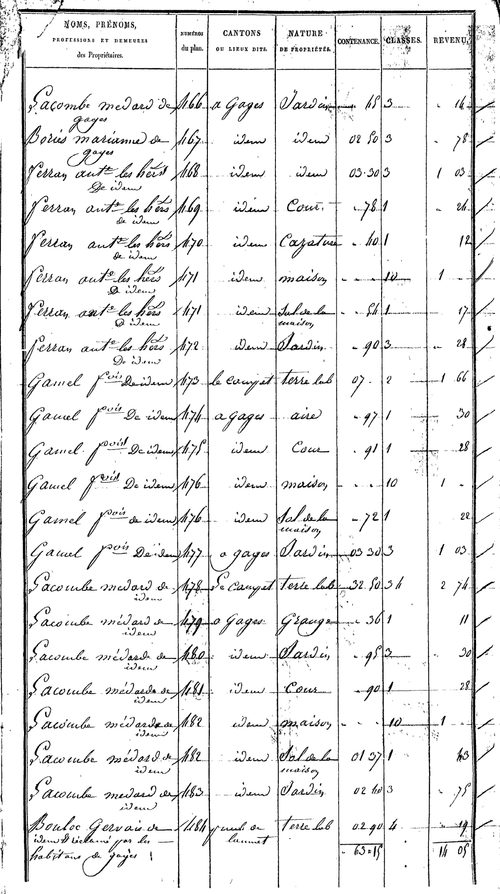 NOMS, PRÉNOMS, PROFESSIONS ET DEMEURES des Propriétaires. NUMÉROS du plan. CANTONS OU LIEUX DITS. NATURE DE PROPRIÉTÉS. CONTENANCE. CLASSES. REVENU.
Lacombe médard de 1166 a Gages Jardin 15 3 14
gages
Boriès marianne de 1167 idem idem 02 50 3 78
gages
Ferran ante les hérs 1168 idem idem 03 30 3 1 03
De idem
Ferran ante les hérs 1169 idem Cour 78 1 24
de idem
Ferran ante les hérs 1170 idem 40 1 12
de idem
Ferran ante les hérs 1171 idem maison 10 1
De idem
Ferran ante les hérs 1171 idem Sol de la 54 1 17
De idem maison
Ferran ante les hérs 1172 idem Jardin 90 3 28
De idem
Gamel fois De idem 1173 le campet terre lab 07 2 1 66
Gamel fois De idem 1174 a gages aire 97 1 30
Gamel fois De idem 1175 idem Cour 91 1 28
Gamel fois De idem 1176 idem maison 10 1
Gamel fois de idem 1176 idem Sol de la 72 1 22
maison
Gamel fois De idem 1177 a gages Jardin 03 30 3 1 03
Lacombe médard de 1178 Le Campet terre lab 32 50 3 4 2 74
idem
Lacombe médard de 1179 a Gages Grange 36 1 11
idem
Lacombe médard de 1180 idem Jardin 95 3 30
idem
Lacombe médard de 1181 idem Cour 90 1 28
idem
Lacombe médard de 1182 idem maison 10 1
idem
Lacombe médard de 1182 idem Sol de la 01 37 1 43
idem maison
Lacombe médard de 1183 idem Jardin 02 40 3 75
idem
Bouloc Gervais de 1184 terre lab 02 90 4 19
idem réclamé par les 63 15 14 05
habitans de gages